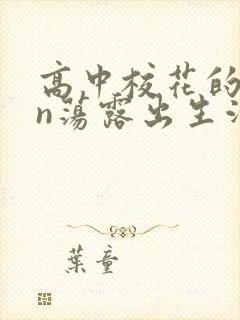 高中校花的
n荡露出生活
葉童